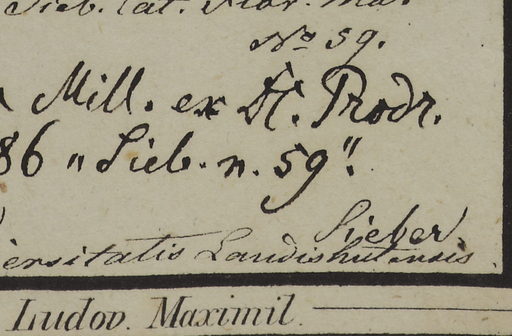 Sieb. cat. Flor. Mar.
No 59.
Mill. ex St. Prodr.
86 „Sieb. n. 59".
Sieber
ersitatis Landishutensis
Ludov. Maximil.